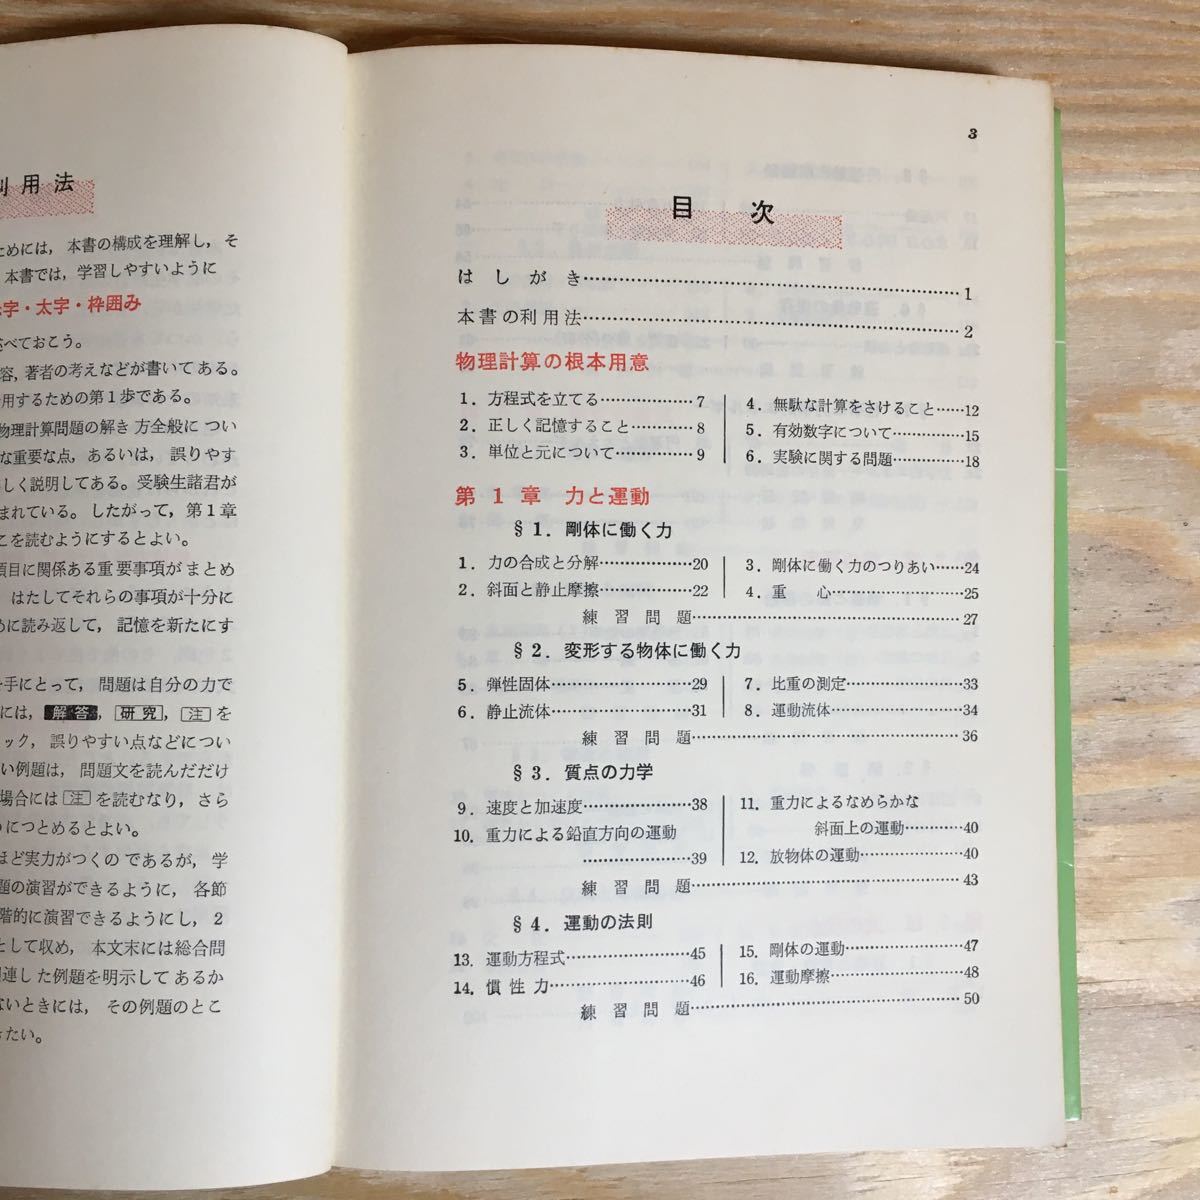 利用法
ためには，本書の構成を理解し，そ
本書では，学習しやすいように
字・太字・枠囲み
述べておこう。
容，著者の考えなどが書いてある。
用するための第１歩である。
物理計算問題の解き方全般につい
な重要な点，あるいは，誤りやす
しく説明してある。受験生諸君が
まれている。したがって，第１章
こを読むようにするとよい。
項目に関係ある重要事項がまとめ
はたしてそれらの事項が十分に
めに読み返して，記憶を新たにす
を手にとって，問題は自分の力で
には，解答，研究，注を
ック，誤りやすい点などについ
い例題は，問題文を読んだだけ
場合には注を読むなり，さら
つにつとめるとよい。
ほど実力がつくのであるが，学
題の演習ができるように，各節
階的に演習できるようにし，２
として収め，本文末には総合問
連した例題を明示してあるか
ないときには，その例題のとこ
きたい。
3
目次
はしがき……1
本書の利用法……2
物理計算の根本用意
1．方程式を立てる……7
2．正しく記憶すること……8
3．単位と元について……9
4．無駄な計算をさけること……12
5．有効数字について……15
6．実験に関する問題……18
第1章 力と運動
§1．剛体に働く力
1．力の合成と分解……20
2．斜面と静止摩擦……22
3．剛体に働く力のつりあい……24
4．重心……25
練習問題……27
§2．変形する物体に働く力
5．弾性固体……29
6．静止流体……31
7．比重の測定……33
8．運動流体……34
練習問題……36
§3．質点の力学
9．速度と加速度……38
10．重力による鉛直方向の運動
……39
11．重力によるなめらかな
斜面上の運動……40
12．放物体の運動……40
練習問題……43
§4．運動の法則
13．運動方程式……45
14．慣性力……46
15．剛体の運動……47
16．運動摩擦……48
練習問題……50